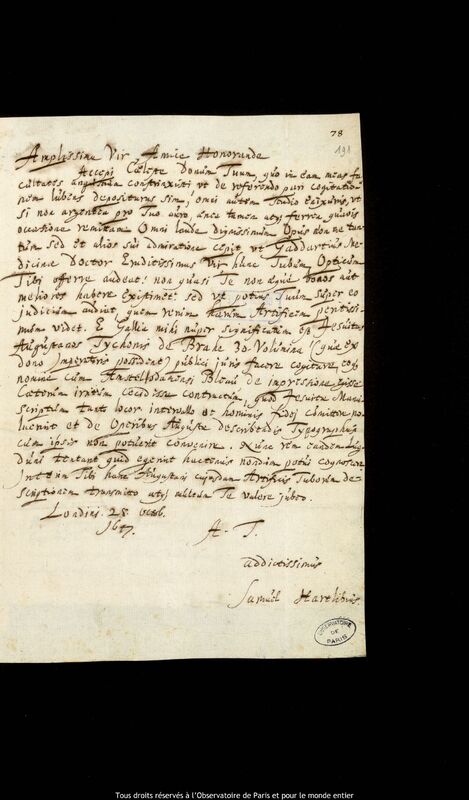 78
191
Amplissime Vir Amice Honorande
Accepi Cæleste Donum Tuum, quo in eam meas fa
cultates constrinxisti vt de referendo pari cogitatio
nem lubens depositurus sim, omni autem studio enixurus, vt
si non argentea pro Tuo auro, ænea tamen aut ferrea quavis
occasione remittam. Omni laude dignissimum Opus non me tan
tum sed et alios sui admiratione cepit, vt Gaddartius Me
dicinæ Doctor Eruditissimus Vir hunc Tubum Opticum
Tibi offerre audeat: non quasi Te non æque bonos aut
meliores habere existimet: sed vt potius Tuum super eo
judicium audiat, quem rerum harum Artificem peritissi
mum videt. E Gallia mihi nuper significatum est Jesuitas
Augustanos Tychonis de Brahe 30 Volumina (quæ ex
dono Imperatoris possident) publici juris facere cogitare, eoq
nomine cum Amstellodamensi Blaeu de impressione
Cæterum irritum cecidisse contractum, quod Jesuitæ Manu
scriptum tanto locor intervallo et hominis fidei committere no
luerint et de Operibus Augustæ describendis Typographus
cum ipsis non potuerit convenire. Nunc rem eandem Lug
duni tentant, quid egerint hactenus nondum potui cognoscere
Interim Tibi hanc Augustani cujusdam Artificis Tuborum de
scriptionem transmitto utq multum Te valere jubeo.
Londini 28 octob.
1647.
A. T.
addictissimus
Samuel Hartlibius.
OBSERVATOIRE
DE
PARIS
Tous droits réservés à l'Observatoire de Paris et pour le monde entier